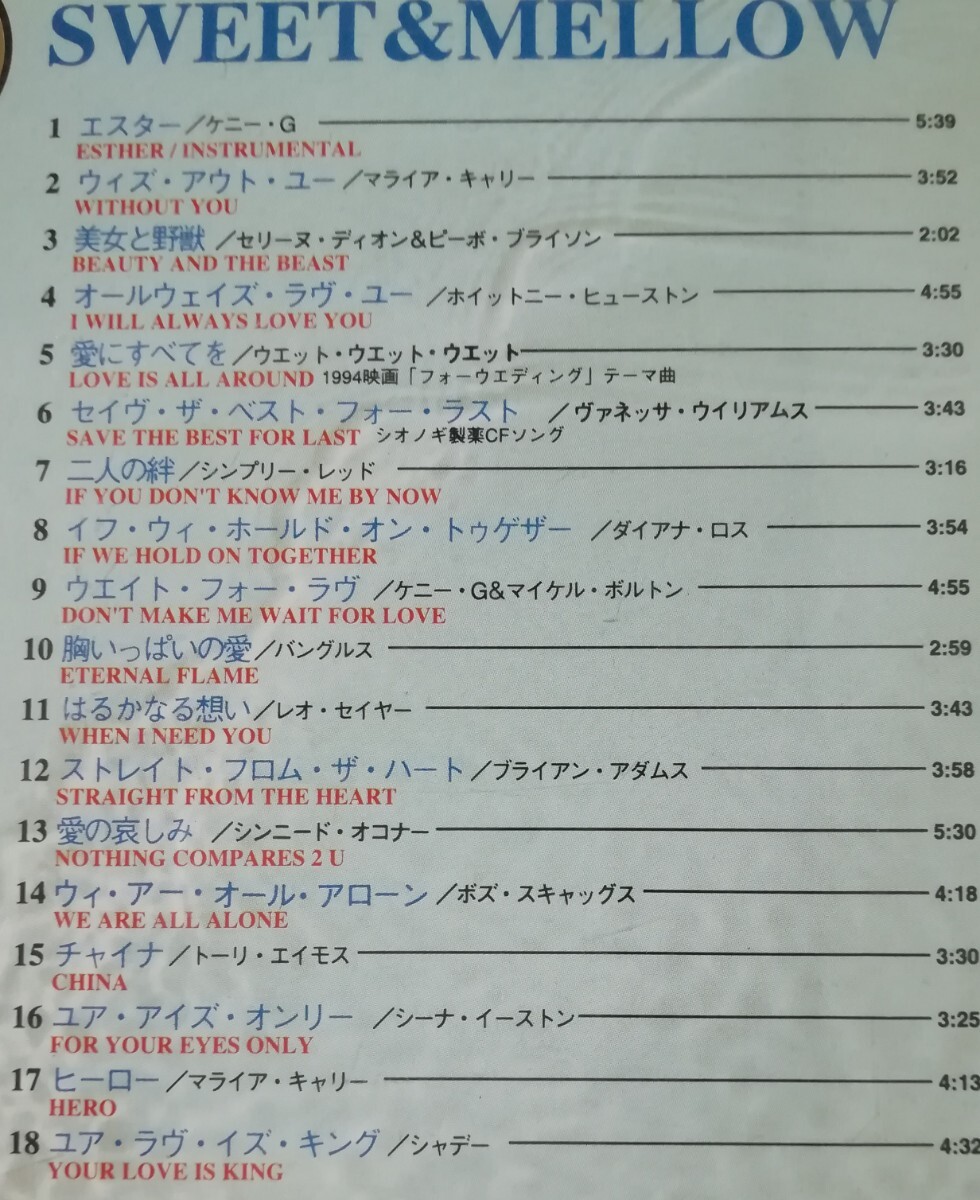 SWEET&MELLOW
1 エスター/ケニー・G 5:39
ESTHER / INSTRUMENTAL
2 ウィズ・アウト・ユー/マライア・キャリー 3:52
WITHOUT YOU
3 美女と野獣/セリーヌ・ディオン&ピーボ・ブライソン 2:02
BEAUTY AND THE BEAST
4 オールウェイズ・ラヴ・ユー/ホイットニー・ヒューストン 4:55
I WILL ALWAYS LOVE YOU
5 愛にすべてを/ウエット・ウエット・ウエット 3:30
LOVE IS ALL AROUND 1994映画「フォーウエディング」テーマ曲
6 セイヴ・ザ・ベスト・フォー・ラスト/ヴァネッサ・ウイリアムス 3:43
SAVE THE BEST FOR LAST シオノギ製薬CFソング
7 二人の絆/シンプリー・レッド 3:16
IF YOU DON'T KNOW ME BY NOW
8 イフ・ウィ・ホールド・オン・トゥゲザー/ダイアナ・ロス 3:54
IF WE HOLD ON TOGETHER
9 ウエイト・フォー・ラヴ/ケニー・G&マイケル・ボルトン 4:55
DON'T MAKE ME WAIT FOR LOVE
10 胸いっぱいの愛/バングルス 2:59
ETERNAL FLAME
11 はるかなる想い/レオ・セイヤー 3:43
WHEN I NEED YOU
12 ストレイト・フロム・ザ・ハート/ブライアン・アダムス 3:58
STRAIGHT FROM THE HEART
13 愛の哀しみ/シンニード・オコナー 5:30
NOTHING COMPARES 2 U
14 ウィ・アー・オール・アローン/ボズ・スキャッグス 4:18
WE ARE ALL ALONE
15 チャイナ/トーリ・エイモス 3:30
CHINA
16 ユア・アイズ・オンリー/シーナ・イーストン 3:25
FOR YOUR EYES ONLY
17 ヒーロー/マライア・キャリー 4:13
HERO
18 ユア・ラヴ・イズ・キング/シャデー 4:32
YOUR LOVE IS KING